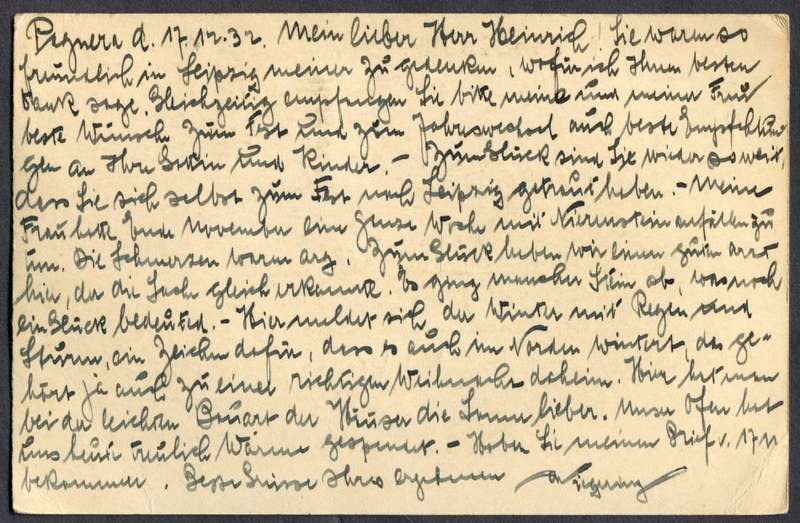 Pegnera d. 17.12.32. Mein lieber Herr Heinrich! Sie waren so
freundlich in Leipzig meiner zu gedenken, wofür ich Ihnen besten
Dank sage. Gleichzeitig empfangen Sie bitte meine und meiner Frau
beste Wünsche zum Fest und zum Jahreswechsel auch beste Empfehlun-
gen an Ihre Gattin und Kinder. – Zum Glück sind Sie wieder so weit,
dass Sie sich selbst zum Fest nach Leipzig getraut haben. – Meine
Frau hatte Ende November eine ganze Woche mit Nierensteinanfällen zu
tun. Die Schmerzen waren arg. Zum Glück haben wir einen guten Arzt
hier, der die Sache gleich erkannte. Es ging mancher Stein ab, was noch
ein Glück bedeuted. – Hier meldet sich der Winter mit Regen und
Sturm, ein Zeichen dafür, dass es auch im Norden wintert, das ge-
hört ja auch zu einer richtigen Weihnacht daheim. Hier hat man
bei der leichten Bauart der Häuser die Sonne lieber. Unser Ofen hat
uns heute treulich Wärme gespendet. – Haben Sie meinen Brief v. 17.11
bekommen. Beste Grüsse Ihres ergebenen